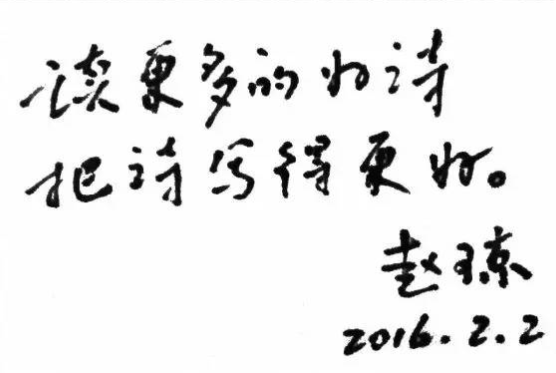 读更多的好诗
把诗写得更好。
赵琼
2016.2.2